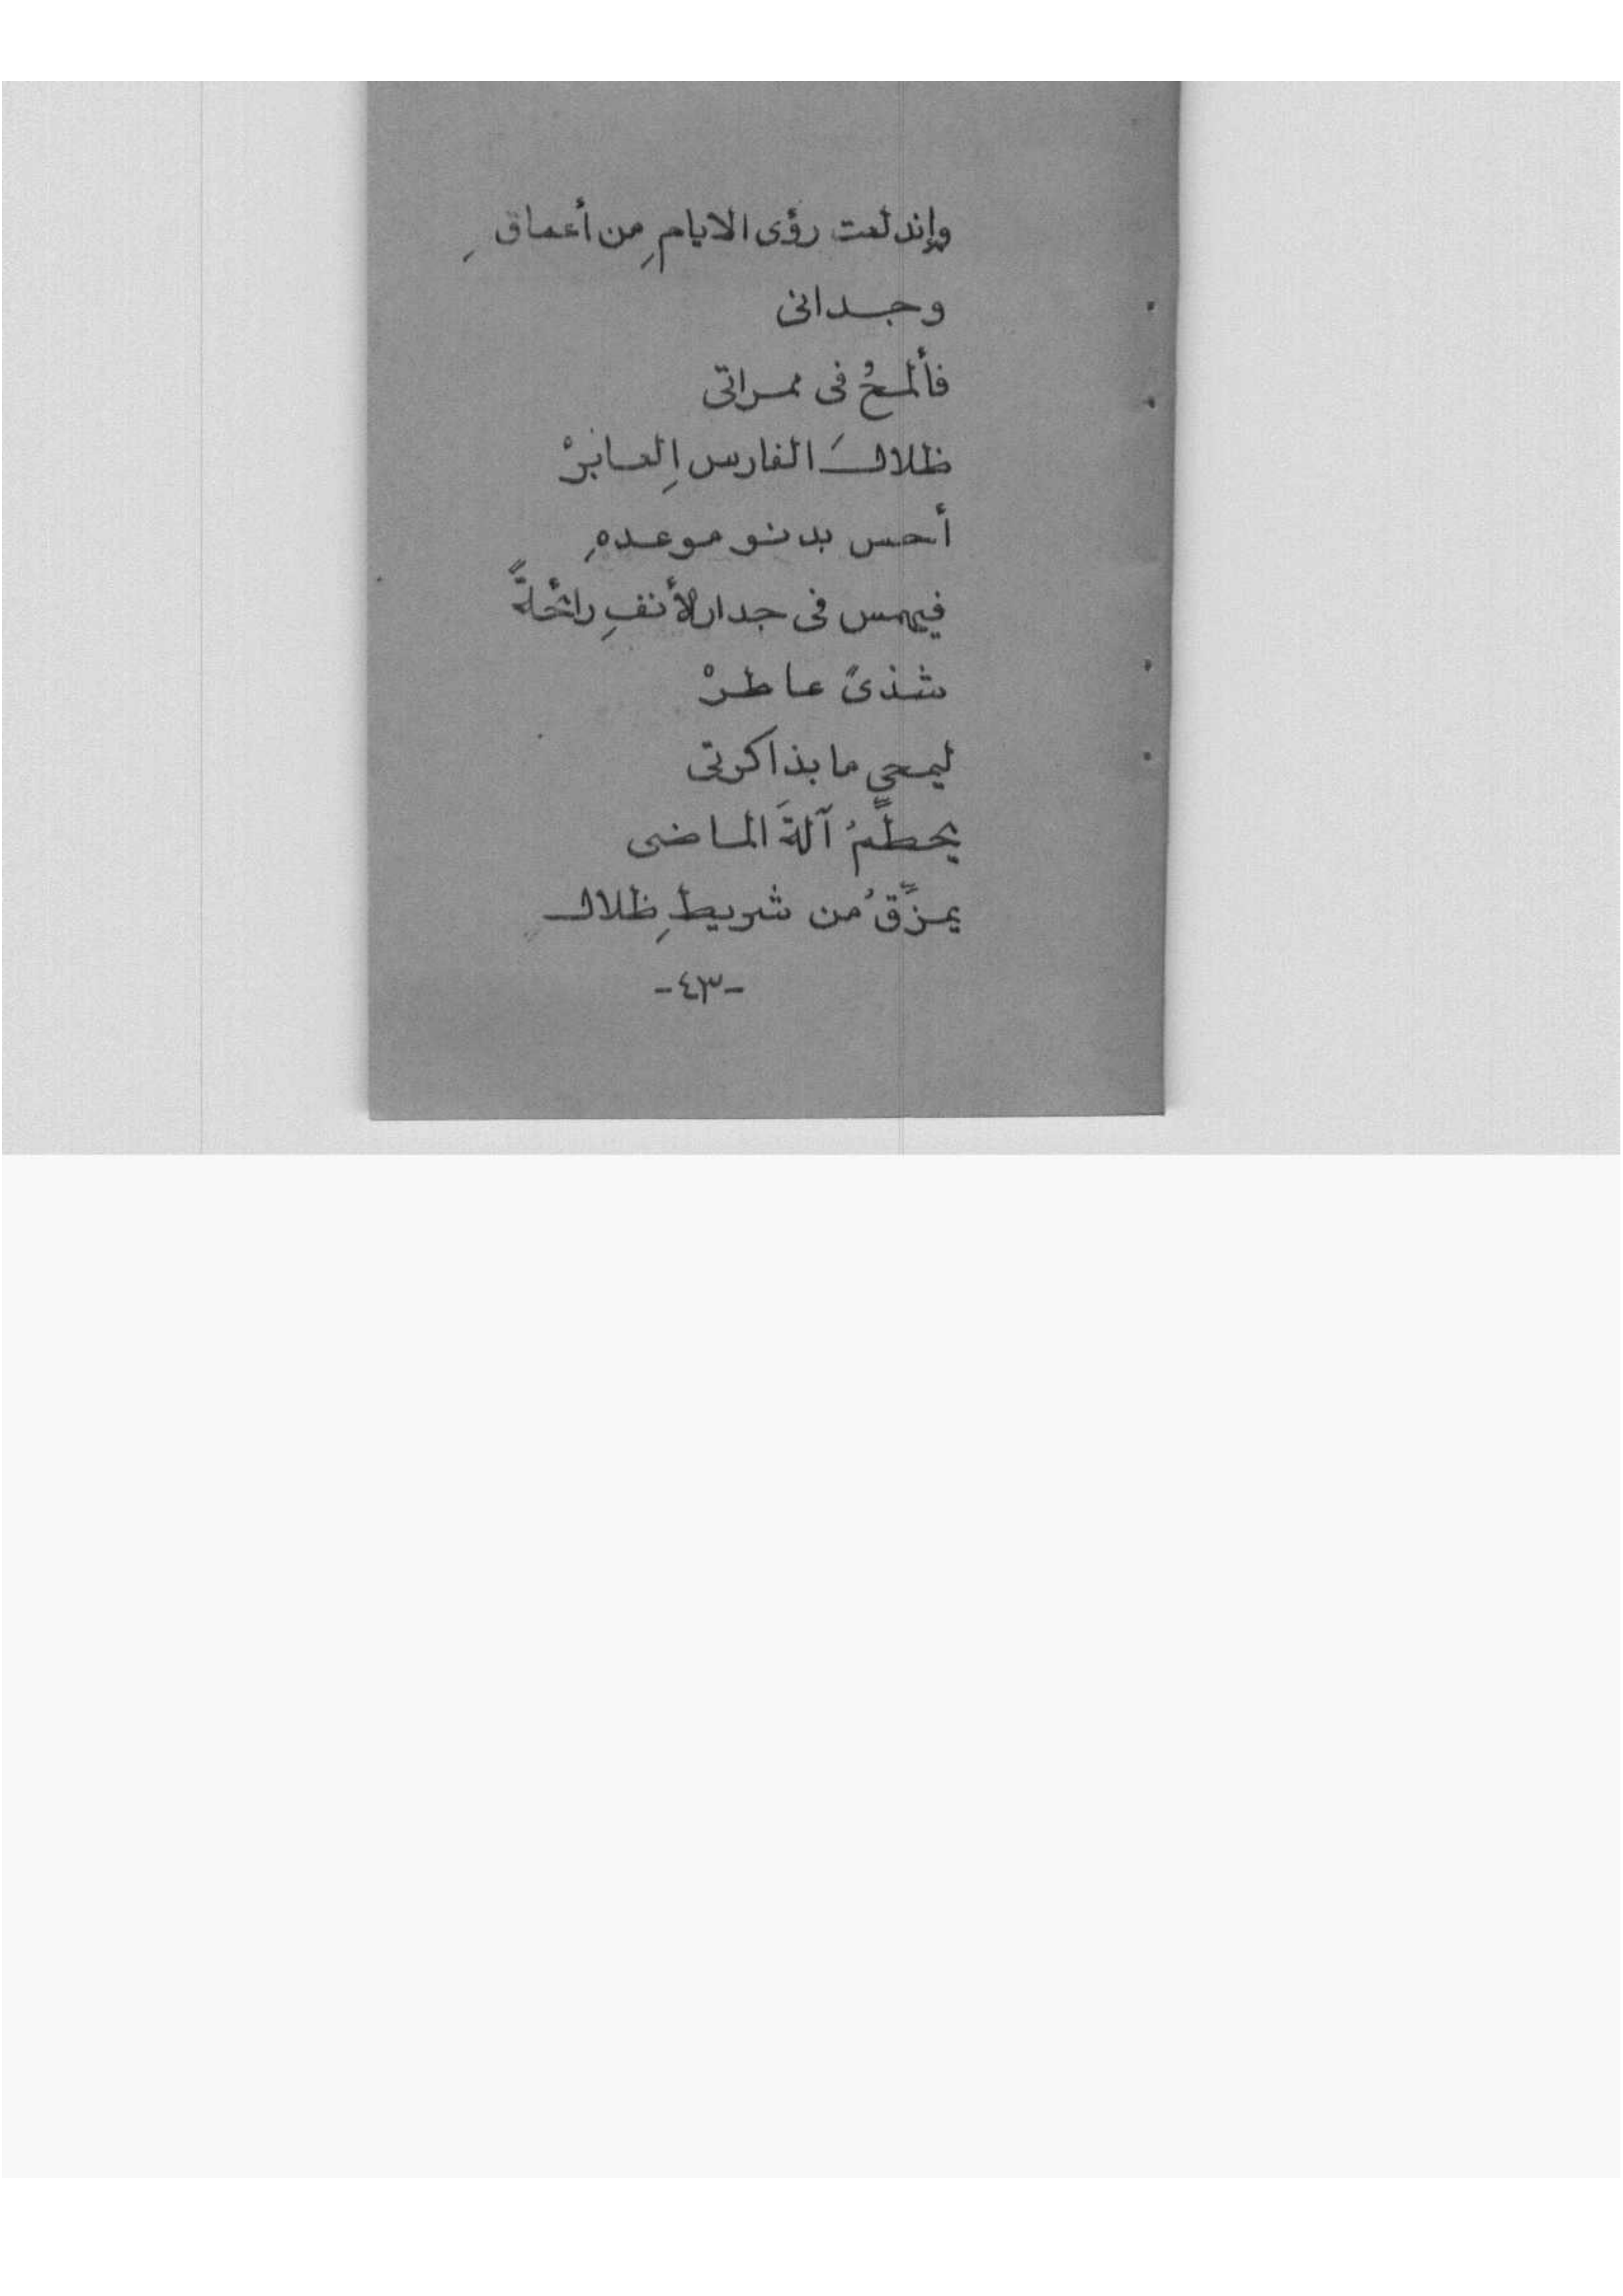 وإندلعت رؤى الايامِ من أعماقِ
وجدانى
فألمحُ فى ممراتى
ظلالَ الفارسِ العابرْ
أحس بدنو موعدهِ
فيهمس فى جدار الأنفِ رائحةً
شذىً عاطرْ
ليمحى ما بذاكرتى
يحطِّمُ آلةَ الماضى
يمزِّقُ من شريطِ ظلالِ
-٤٣-